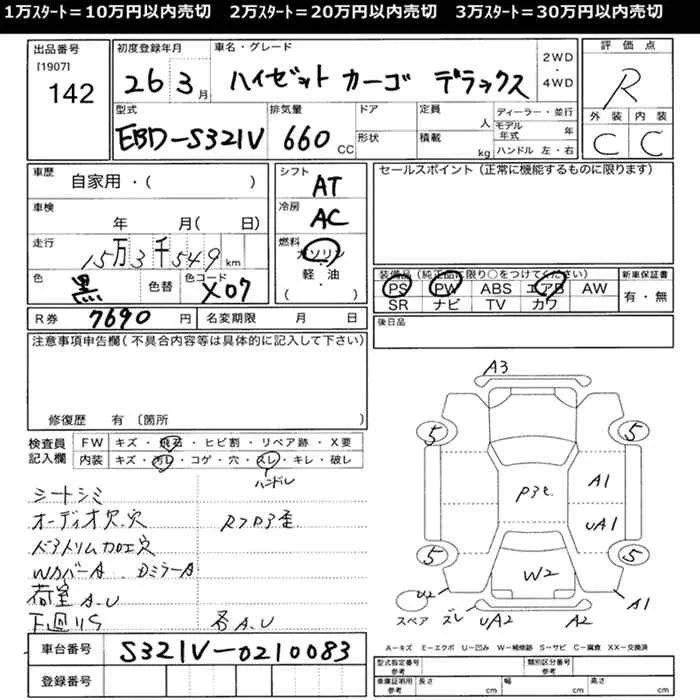 1万スタート=10万円以内売切　2万スタート=20万円以内売切　3万スタート=30万円以内売切
出品番号 初度登録年月 車名・グレード 2WD・4WD 評価点
[1907]
142 26 3月 ハイゼット カーゴ デラックス R
型式 排気量 ドア 定員 人 ディーラー・並行 外装 内装
EBD-S321V 660 CC 形状 積載 kg モデル年式 年 C C
ハンドル 左・右
車歴 自家用・( ) シフト AT セールスポイント (正常に機能するものに限ります)
車検 年 月( 日) 冷房 AC
走行 15万3千549 km 燃料 ガソリン・軽・油 ( )
色 黒 色替 色コード X07
装備品 (純正品に限り○をつけてください) 新車保証書
PS PW ABS エアB AW 有・無
SR ナビ TV カワ
R券 7690 円 名変期限 月 日 後日品
注意事項申告欄(不具合内容等は具体的に記入して下さい)
修復歴 有 〔箇所
検査員記入欄 FW キズ・飛石・ヒビ割・リペア跡・X要
内装 キズ・汚レ・コゲ・穴・スレ・キレ・破レ
ハンドル
シートシミ
オーディオ欠.穴
ドアトリム加工穴
Wカバー A DミラーA
荷室 A.U
下廻りS 各A.U
A3
5 5
A1
UA1
W2
5 5
U2 ズレ UA2 A2 A1
スペア
A-キズ E-エクボ U-凹み W-補修跡 S-サビ C-腐食 XX-交換済
車台番号 S321V-0210083
登録番号
型式指定番号 参考 類別区分番号
車庫証明用 参考 長さ cm 幅 cm 高さ cm